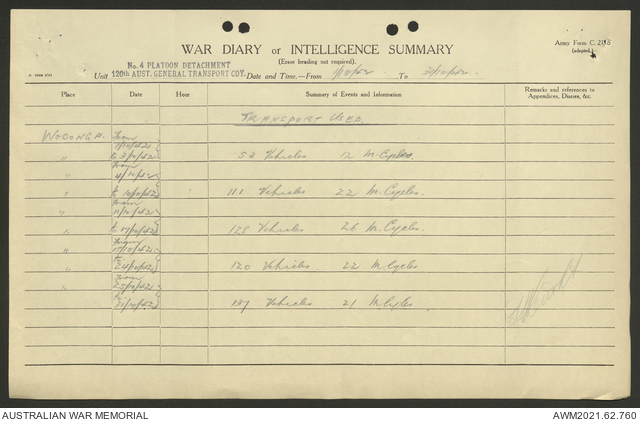 WAR DIARY or INTELLIGENCE SUMMARY
Army Form C. 2118
(adapted.)
(Erase heading not required).
No. 4 PLATOON DETACHMENT
Unit 120th AUST. GENERAL TRANSPORT COY. Date and Time.—From 1/10/42 To 31/10/42.
Place Date Hour Summary of Events and Information Remarks and references to Appendices, Diaries, &c.
TRANSPORT USED.
WODONGA. From
1/10/42
to 3/10/42 53 Vehicles 12 M. Cycles.
" From
4/10/42
" to 10/10/42 111 Vehicles 22 M. Cycles.
" From
11/10/42
" to 17/10/42 128 Vehicles 26 M. Cycles.
" From
to
" 24/10/42 120 Vehicles. 22 M. Cycles
" From
25/10/42
to
31/10/42 Vehicles 21 M. Cycles.
AUSTRALIAN WAR MEMORIAL AWM2021.62.760